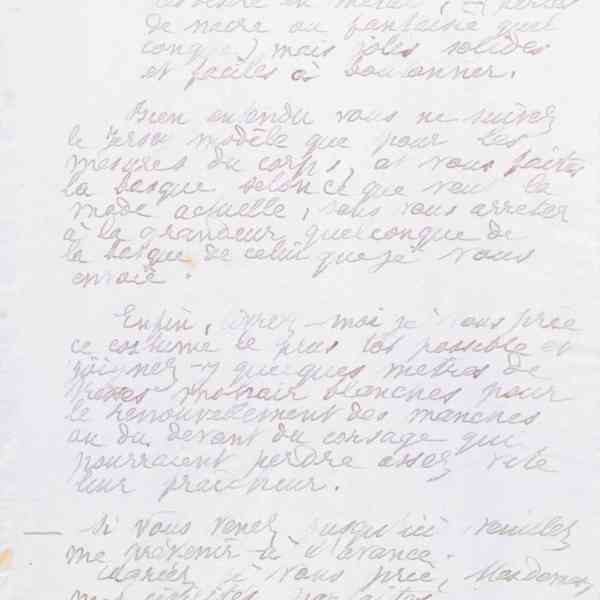 de nacre ou fantaisie quel
conque) mais jolis solides
et faciles à boutonner.
Bien entendu vous ne suivez
le modèle que pour les
mesures du corps, et vous faites
la basque selon ce que veut la
mode actuelle, sans vous arrêter
à la grandeur quelconque de
la basque de celui que je vous
envoie.
Enfin, livrez-moi je vous prie
ce costume le plus tôt possible et
joignez-y quelques mètres de
tresses mohair blanches pour
le renouvellement des manches
ou du devant du corsage qui
pourraient perdre assez vite
leur fraîcheur.
— Si vous venez jusqu'ici veuillez
me prévenir à l'avance.
je vous prie, Mesdames,